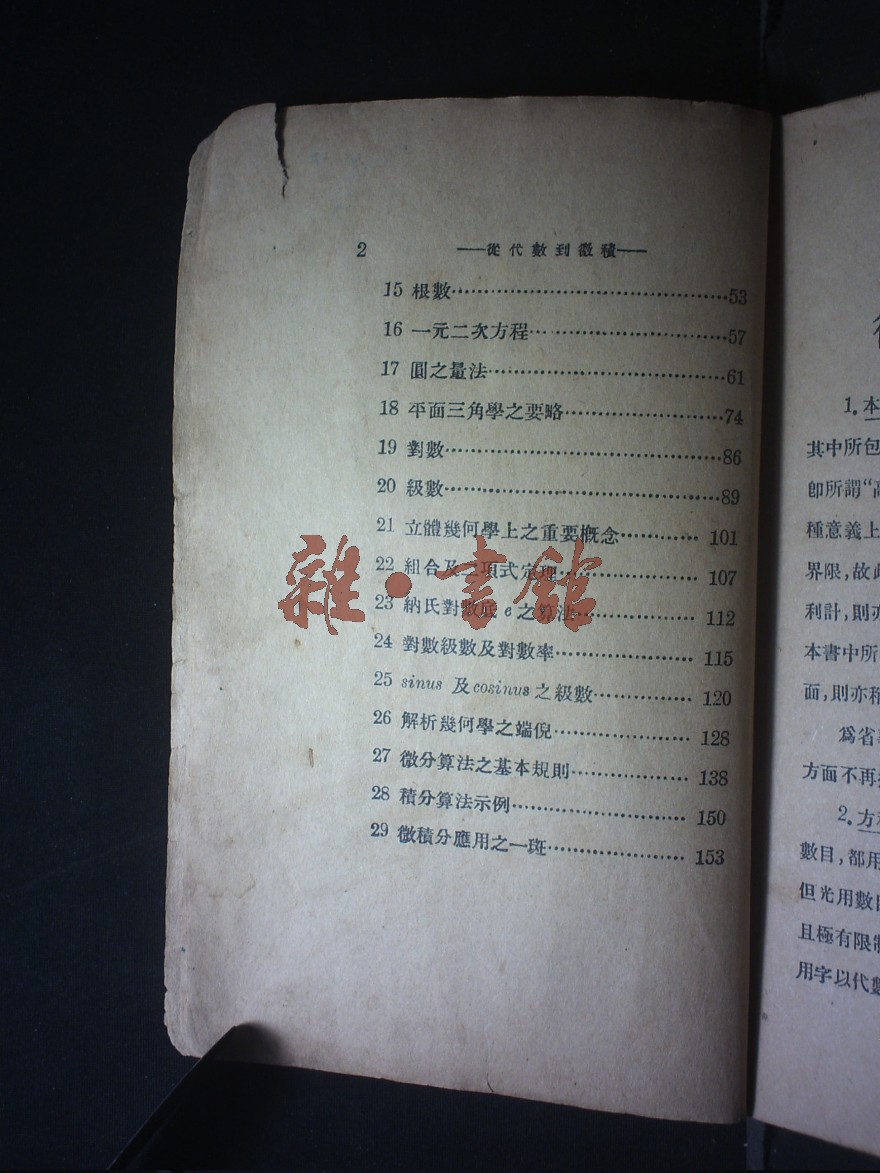 2 ——從代數到微積——
15 根數…………………………………53
16 一元二次方程…………………………57
17 圓之量法………………………………61
18 平面三角學之要略……………………74
19 對數……………………………………86
20 級數……………………………………89
21 立體幾何學上之重要概念………… 101
22 組合及二項式定理………………… 107
23 納氏對數底 e 之算法……………… 112
24 對數級數及對數率………………… 115
25 sinus 及 cosinus 之級數…………… 120
26 解析幾何學之端倪………………… 128
27 微分算法之基本規則……………… 138
28 積分算法示例……………………… 150
29 微積分應用之一斑………………… 153
雜·書館
1. 本
其中所包
卽所謂“高
種意義上
界限,故此
利計,則亦
本書中所
面,則亦稱
爲省
方面不再
2. 方程
數目,都用
但光用數目
且極有限制
用字以代數